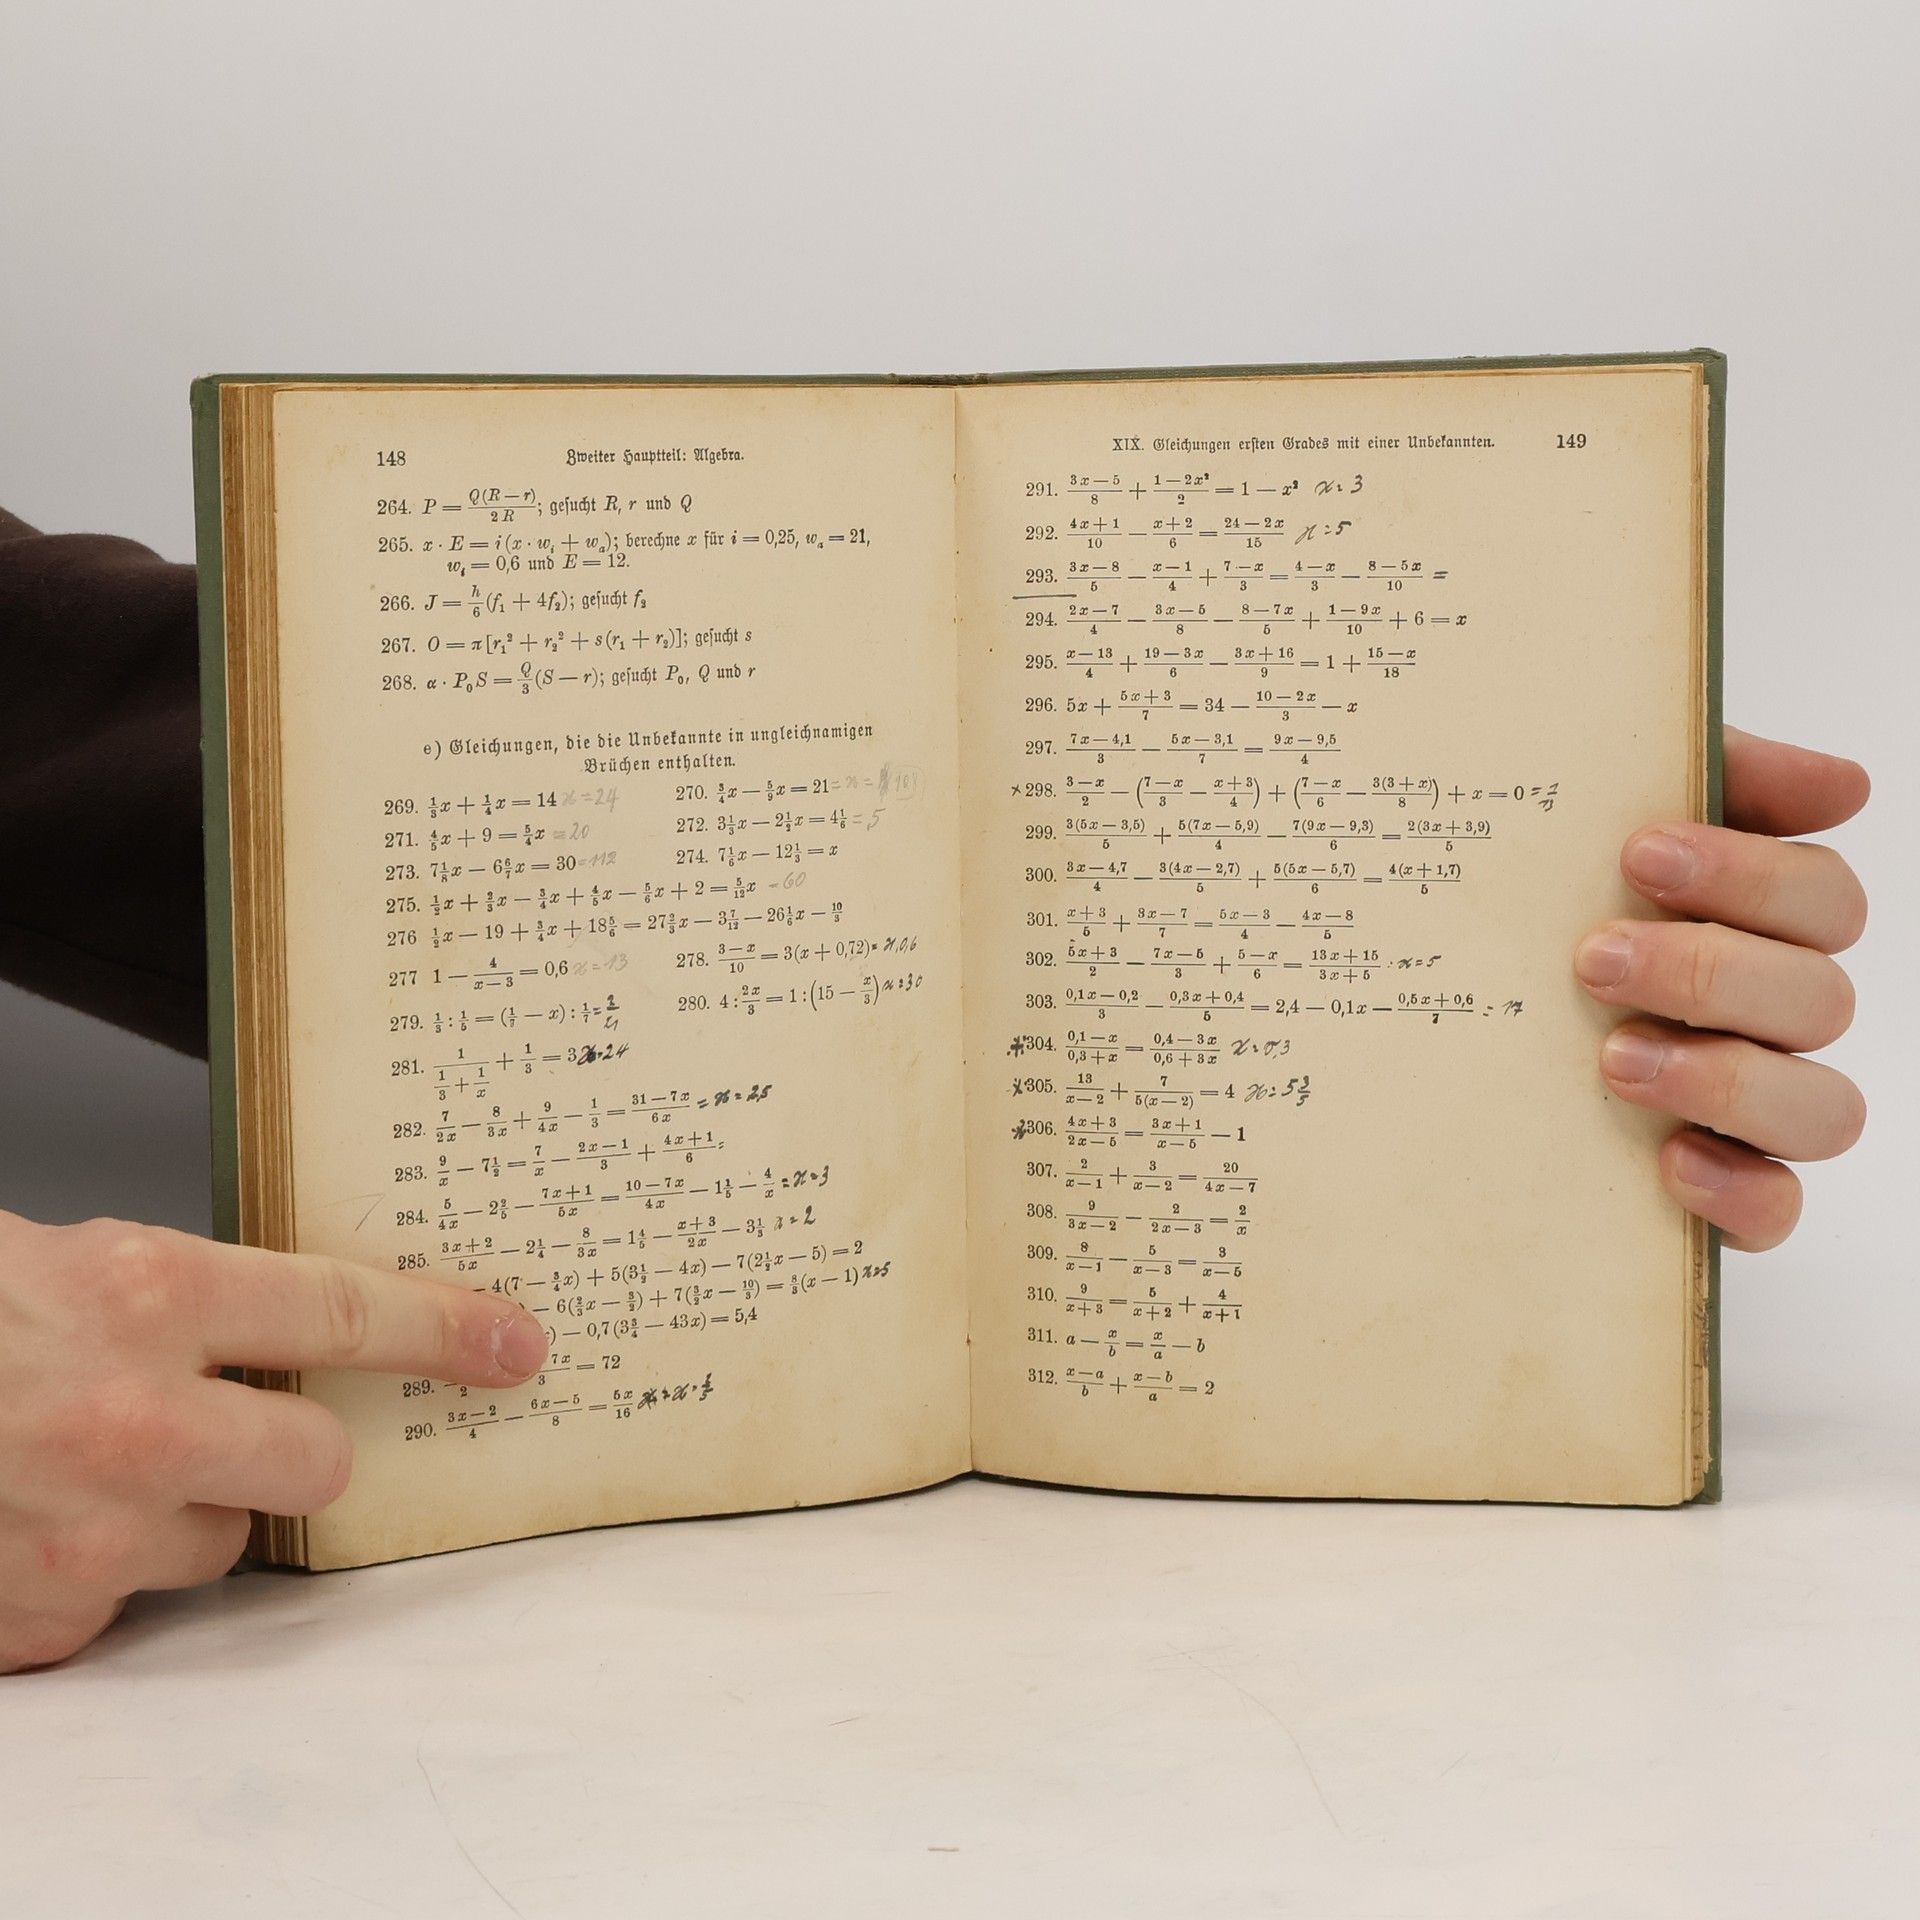 148 Zweiter Hauptteil: Algebra.
264. P = Q(R − r)/2R; gesucht R, r und Q
265. x · E = i(x · wᵢ + wₐ); berechne x für i = 0,25, wₐ = 21,
wᵢ = 0,6 und E = 12.
266. J = h/6(f₁ + 4f₂); gesucht f₂
267. O = π[r₁² + r₂² + s(r₁ + r₂)]; gesucht s
268. α · P₀S = Q/3(S − r); gesucht P₀, Q und r
e) Gleichungen, die die Unbekannte in ungleichnamigen
Brüchen enthalten.
269. 1/3x + 1/4x = 14 x = 24 270. 3/4x − 5/9x = 21 = x = 108
271. 4/5x + 9 = 5/4x = 20 272. 3 1/3x − 2 1/2x = 4 1/6 = 5
273. 7 1/8x − 6 6/7x = 30 = 112 274. 7 1/6x − 12 1/3 = x
275. 1/2x + 2/3x − 3/4x + 4/5x − 5/6x + 2 = 5/12x = 60
276 1/2x − 19 + 3/4x + 18 5/6 = 27 2/3x − 3 7/12 − 26 1/6x − 10/3
277 1 − 4/(x − 3) = 0,6 x = 13 278. (3 − x)/10 = 3(x + 0,72) = x,0,6
279. 1/3 : 1/5 = (1/7 − x) : 1/7 = 2/21 280. 4 : 2x/3 = 1 : (15 − x/3) x = 30
281. 1/(1/3 + 1/x) + 1/3 = 3 x = 24
282. 7/2x − 8/3x + 9/4x − 1/3 = (31 − 7x)/6x = x = 2,5
283. 9/x − 7 1/2 = 7/x − (2x − 1)/3 + (4x + 1)/6 =
284. 5/4x − 2 2/5 − (7x + 1)/5x = (10 − 7x)/4x − 1 1/5 − 4/x = x = 3
285. (3x + 2)/5x − 2 1/4 − 8/3x = 1 4/5 − (x + 3)/2x − 3 1/3 x = 2
− 4(7 − 3/4x) + 5(3 1/2 − 4x) − 7(2 1/2x − 5) = 2
) − 6(2/3x − 3/2) + 7(3/2x − 10/3) = 8/3(x − 1) x = 5
) − 0,7(3 3/4 − 43x) = 5,4
289. 7x/3 = 72
290. (3x − 2)/4 − (6x − 5)/8 = 5x/16 x = x =
XIX. Gleichungen ersten Grades mit einer Unbekannten. 149
291. (3x − 5)/8 + (1 − 2x²)/2 = 1 − x² x = 3
292. (4x + 1)/10 − (x + 2)/6 = (24 − 2x)/15 x = 5
293. (3x − 8)/5 − (x − 1)/4 + (7 − x)/3 = (4 − x)/3 − (8 − 5x)/10 =
294. (2x − 7)/4 − (3x − 5)/8 − (8 − 7x)/5 + (1 − 9x)/10 + 6 = x
295. (x − 13)/4 + (19 − 3x)/6 − (3x + 16)/9 = 1 + (15 − x)/18
296. 5x + (5x + 3)/7 = 34 − (10 − 2x)/3 − x
297. (7x − 4,1)/3 − (5x − 3,1)/7 = (9x − 9,5)/4
x 298. (3 − x)/2 − ((7 − x)/3 − (x + 3)/4) + ((7 − x)/6 − 3(3 + x)/8) + x = 0 =
299. 3(5x − 3,5)/5 + 5(7x − 5,9)/4 − 7(9x − 9,3)/6 = 2(3x + 3,9)/5
300. (3x − 4,7)/4 − 3(4x − 2,7)/5 + 5(5x − 5,7)/6 = 4(x + 1,7)/5
301. (x + 3)/5 + (3x − 7)/7 = (5x − 3)/4 − (4x − 8)/5
302. (5x + 3)/2 − (7x − 5)/3 + (5 − x)/6 = (13x + 15)/(3x + 5) : x = 5
303. (0,1x − 0,2)/3 − (0,3x + 0,4)/5 = 2,4 − 0,1x − (0,5x + 0,6)/7 = 17
304. (0,1 − x)/(0,3 + x) = (0,4 − 3x)/(0,6 + 3x) x = 0,3
x 305. 13/(x − 2) + 7/5(x − 2) = 4 x = 5 3/5
x 306. (4x + 3)/(2x − 5) = (3x + 1)/(x − 5) − 1
307. 2/(x − 1) + 3/(x − 2) = 20/(4x − 7)
308. 9/(3x − 2) − 2/(2x − 3) = 2/x
309. 8/(x − 1) − 5/(x − 3) = 3/(x − 5)
310. 9/(x + 3) = 5/(x + 2) + 4/(x + 1)
311. a − x/b = x/a − b
312. (x − a)/b + (x − b)/a = 2